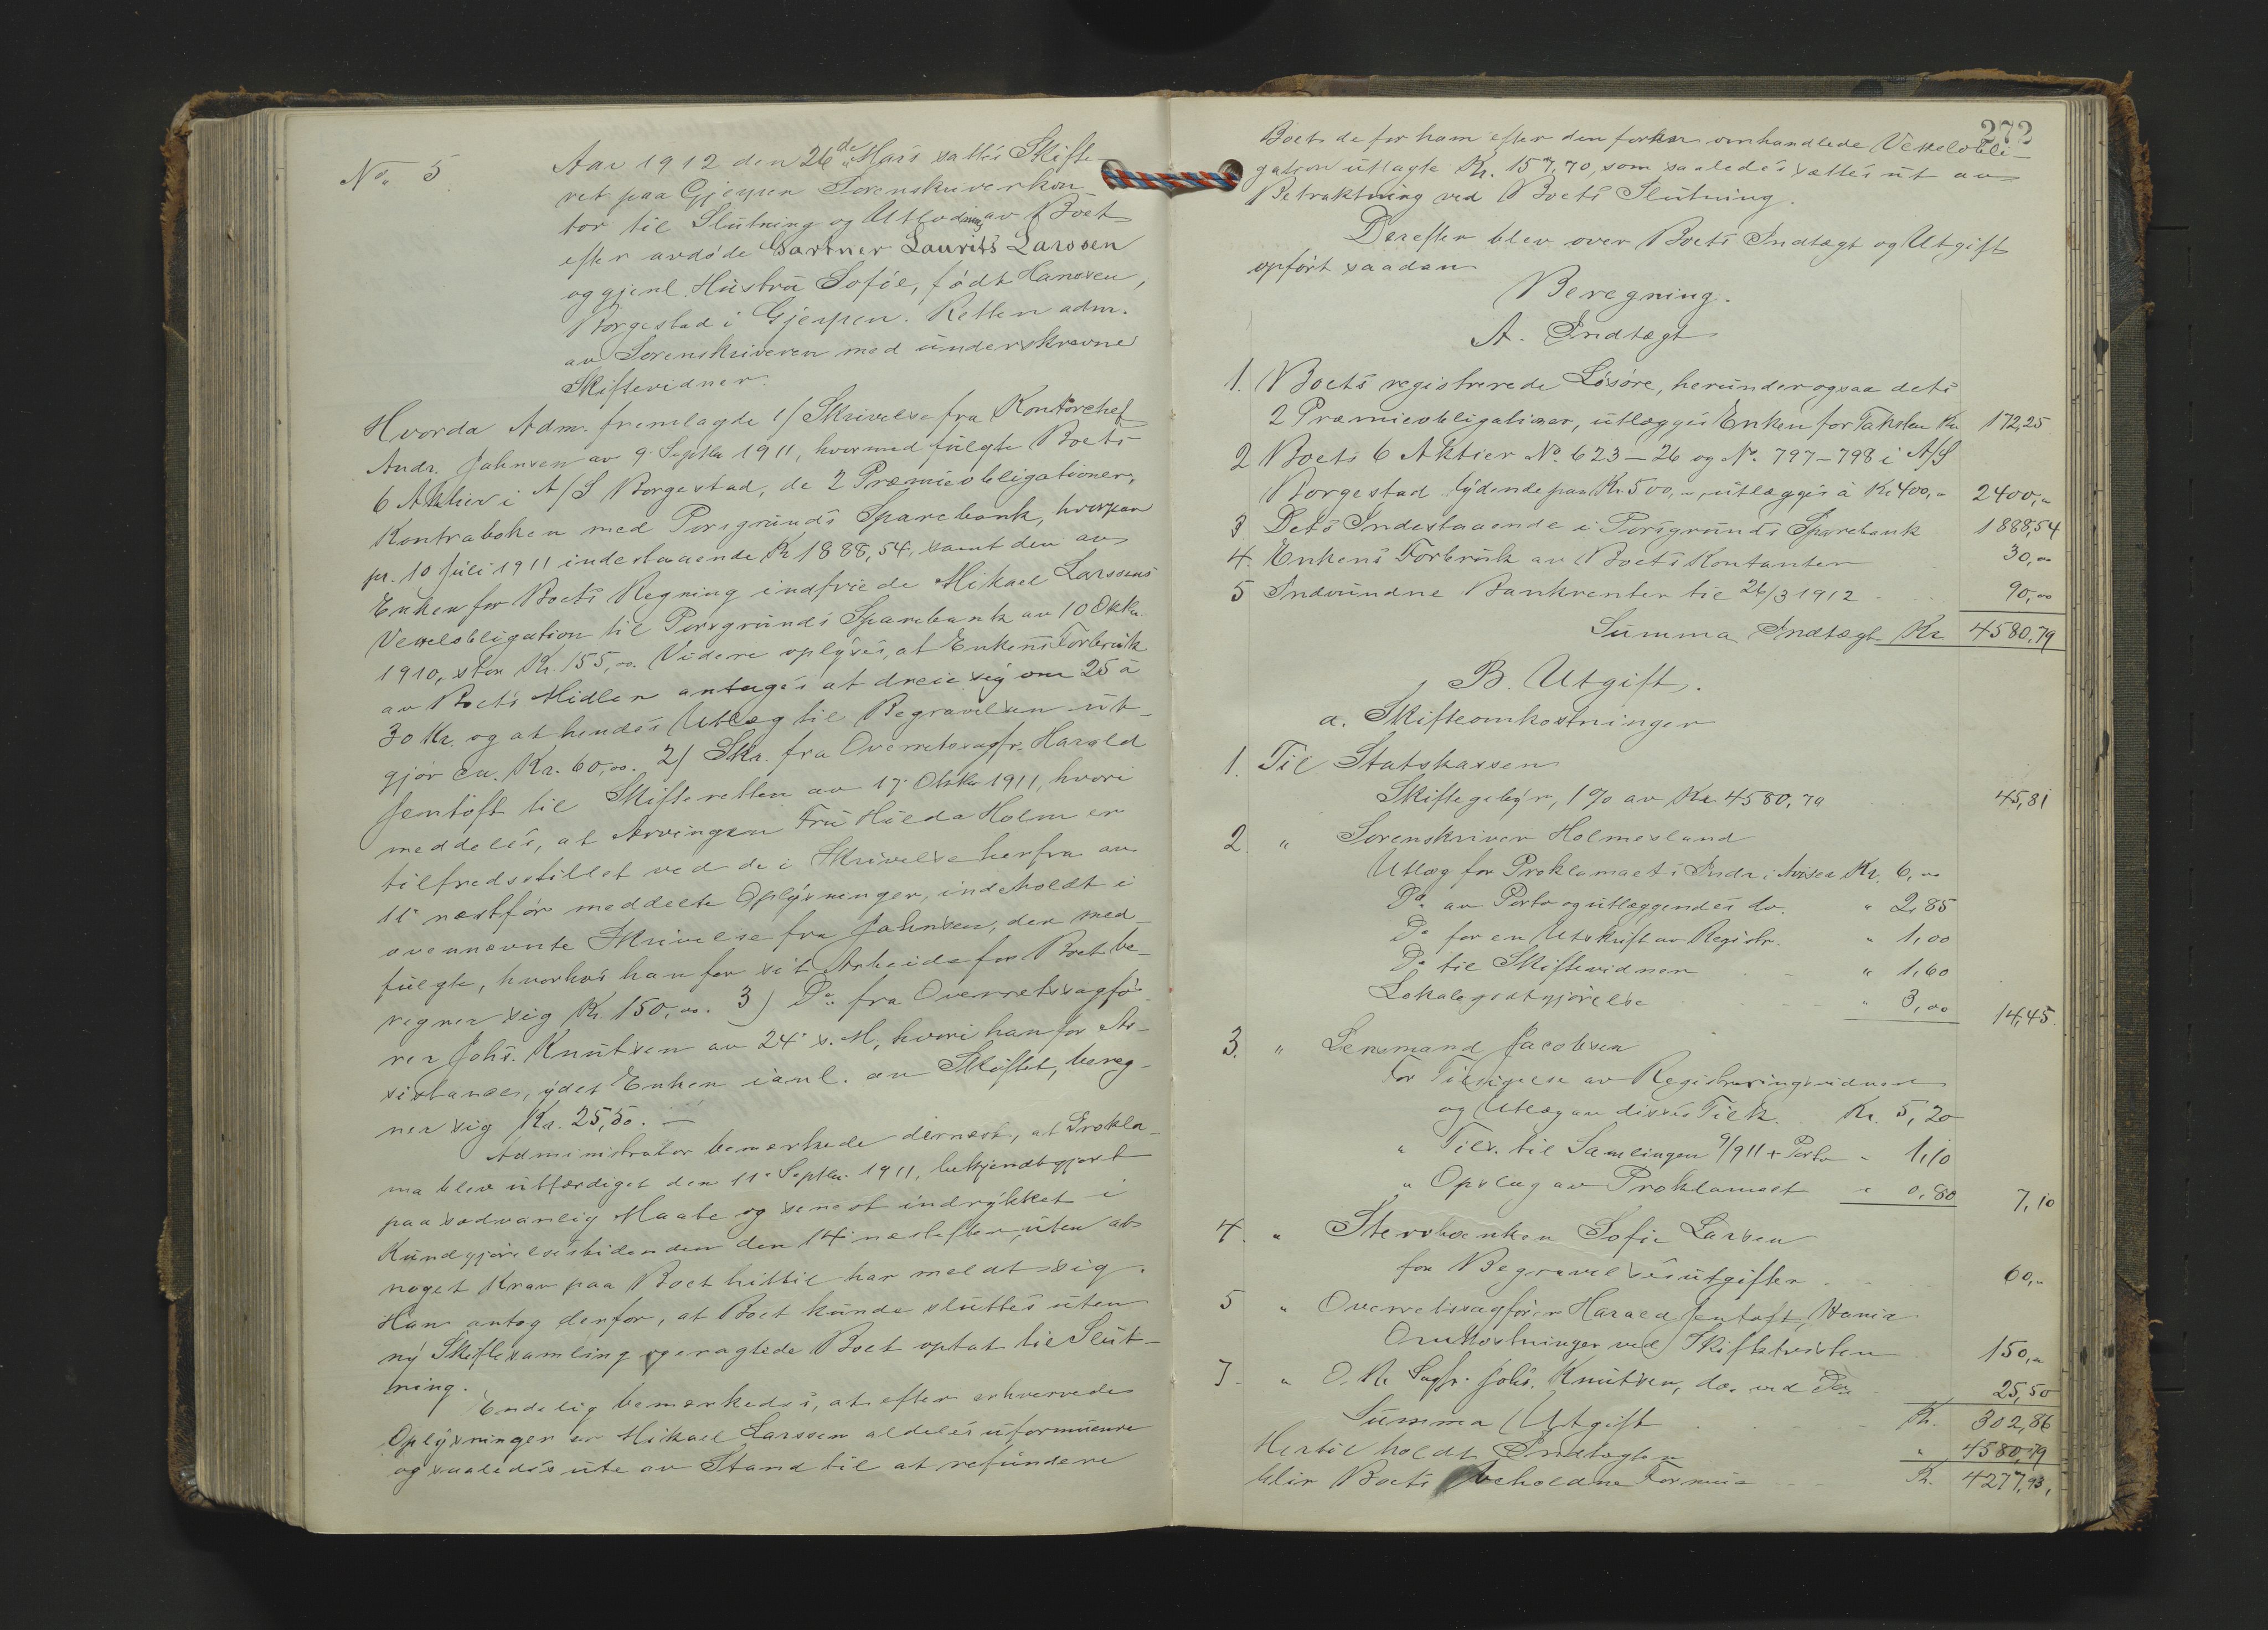 No. 5
Aar 1912 den 26de Mars sattes Skifte-
ret paa Gjerpen Sorenskriverkon-
tor til Slutning og Utlodning av Boet
efter avdøde Gartner Laurits Larssen
og gjenl. Hustru Sofie, født Hanssen,
Borgestad i Gjerpen. Retten adm.
av Sorenskriveren med underskrevne
Skiftevidner.
Hvorda Adm. fremlagde 1/ Skrivelse fra Kontorchef
Andr. Jahnsen av 9. Septbr 1911, hvormed fulgte Boets
6 Aktier i A/S Borgestad, de 2 Præmieobligationer,
Kontraboken med Porsgrunds Sparebank, hvorpaa
pr. 10 Juli 1911 indestaaende Kr 1888,54, samt den av
Enken for Boets Regning indfriede Mikael Larssens
Vexelobligation til Porsgrunds Sparebank av 10 Oktbr.
1910, stor Kr. 155,00. Videre oplyses, at Enkens Forbruk
av Boets Midler antages at dreie sig om 25 à
30 Kr. og at hendes Utlæg til Begravelsen ut-
gjør ca. Kr. 60,00. 2/ Skr. fra Overretssagfr. Harald
Jentoft til Skifteretten av 17. Oktbr 1911, hvori
meddeles, at Arvingen Fru Hilda Holm er
tilfredsstillet ved de i Skrivelse herfra av
11. næstfør meddelte Oplysninger, indeholdt i
ovennævnte Skrivelse fra Jahnsen, der med-
fulgte, hvorhos han for sit Arbeide for Boet be-
regner sig Kr. 150,00. 3) Do. fra Overretssagfø-
rer Johs. Knutsen av 24. s. M, hvori han for As-
sistance, ydet Enken i anl. av Skiftet, bereg-
ner sig Kr. 25,50. —
Administrator bemærkede dernæst, at Prokla-
ma blev utfærdiget den 11. Septbr. 1911, bekjendtgjort
paa sedvanlig Maate og senest indrykket i
Kundgjørelsestidenden den 14. næstefter, uten at
noget Krav paa Boet hittil har meldt sig.
Han antog derfor, at Boet kunde sluttes uten
ny Skiftesamling og eragtede Boet optat til Slut-
ning.
Endelig bemærkedes, at efter erhvervede
Oplysninger er Mikael Larssen aldeles uformuende
og saaledes ute av Stand til at refundere
272
Boet de for ham efter den forhen omhandlede Vexelobli-
gation utlagte Kr. 157,70, som saaledes sættes ut av
Betraktning ved Boets Slutning.
Derefter blev over Boets Indtægt og Utgift
opført saadan
Beregning.
A. Indtægt
1. Boets registrerede Løsøre, herunder ogsaa dets
2 Præmieobligationer, utlægges Enken for Taksten Kr. 172,25
2 Boets 6 Aktier No. 623–26 og No. 797–798 i A/S
Borgestad lydende paa Kr. 500,00, utlægges à Kr 400,00 2400,00
3 Dets Indestaaende i Porsgrunds Sparebank 1888,54
4. Enkens Forbruk av Boets Kontanter 30,00
5 Indvundne Bankrenter til 26/3 1912 90,00
Summa Indtægt Kr 4580,79
B. Utgift.
a. Skifteomkostninger
1. Til Statskassen
Skiftegebyr, 1% av Kr. 4580,79 45,81
2. " Sorenskriver Holmesland
Utlæg for Proklamaets Indr. i Aviser Kr. 6,00
Do. av Porto og utlæggendes do. " 2,85
Do for en Utskrift av Registr. " 1,00
Do til Skiftevidner " 1,60
Lokalegodtgjørelse " 3,00 14,45
3. " Lensmand Jacobsen
For Tilsigelse av Registreringsvidner
og Utlæg av disses Tilk. Kr. 5,20
" Tils. til Samlingen 9/9 11 + Porto " 1,10
" Opslag av Proklamaet " 0,80 7,10
4. " Stervboenken Sofie Larsen
for Begravelsesutgifter 60,00
5 " Overretssagfører Harald Jentoft,
Omkostninger ved Skiftetvisten 150,00
7 " O. R. Sagfr. Johs. Knutsen, do. ved Do. 25,50
Summa Utgift Kr. 302,86
Hertil holdt Indtægten " 4580,79
blir Boets beholdne Formue Kr. 4277,93,